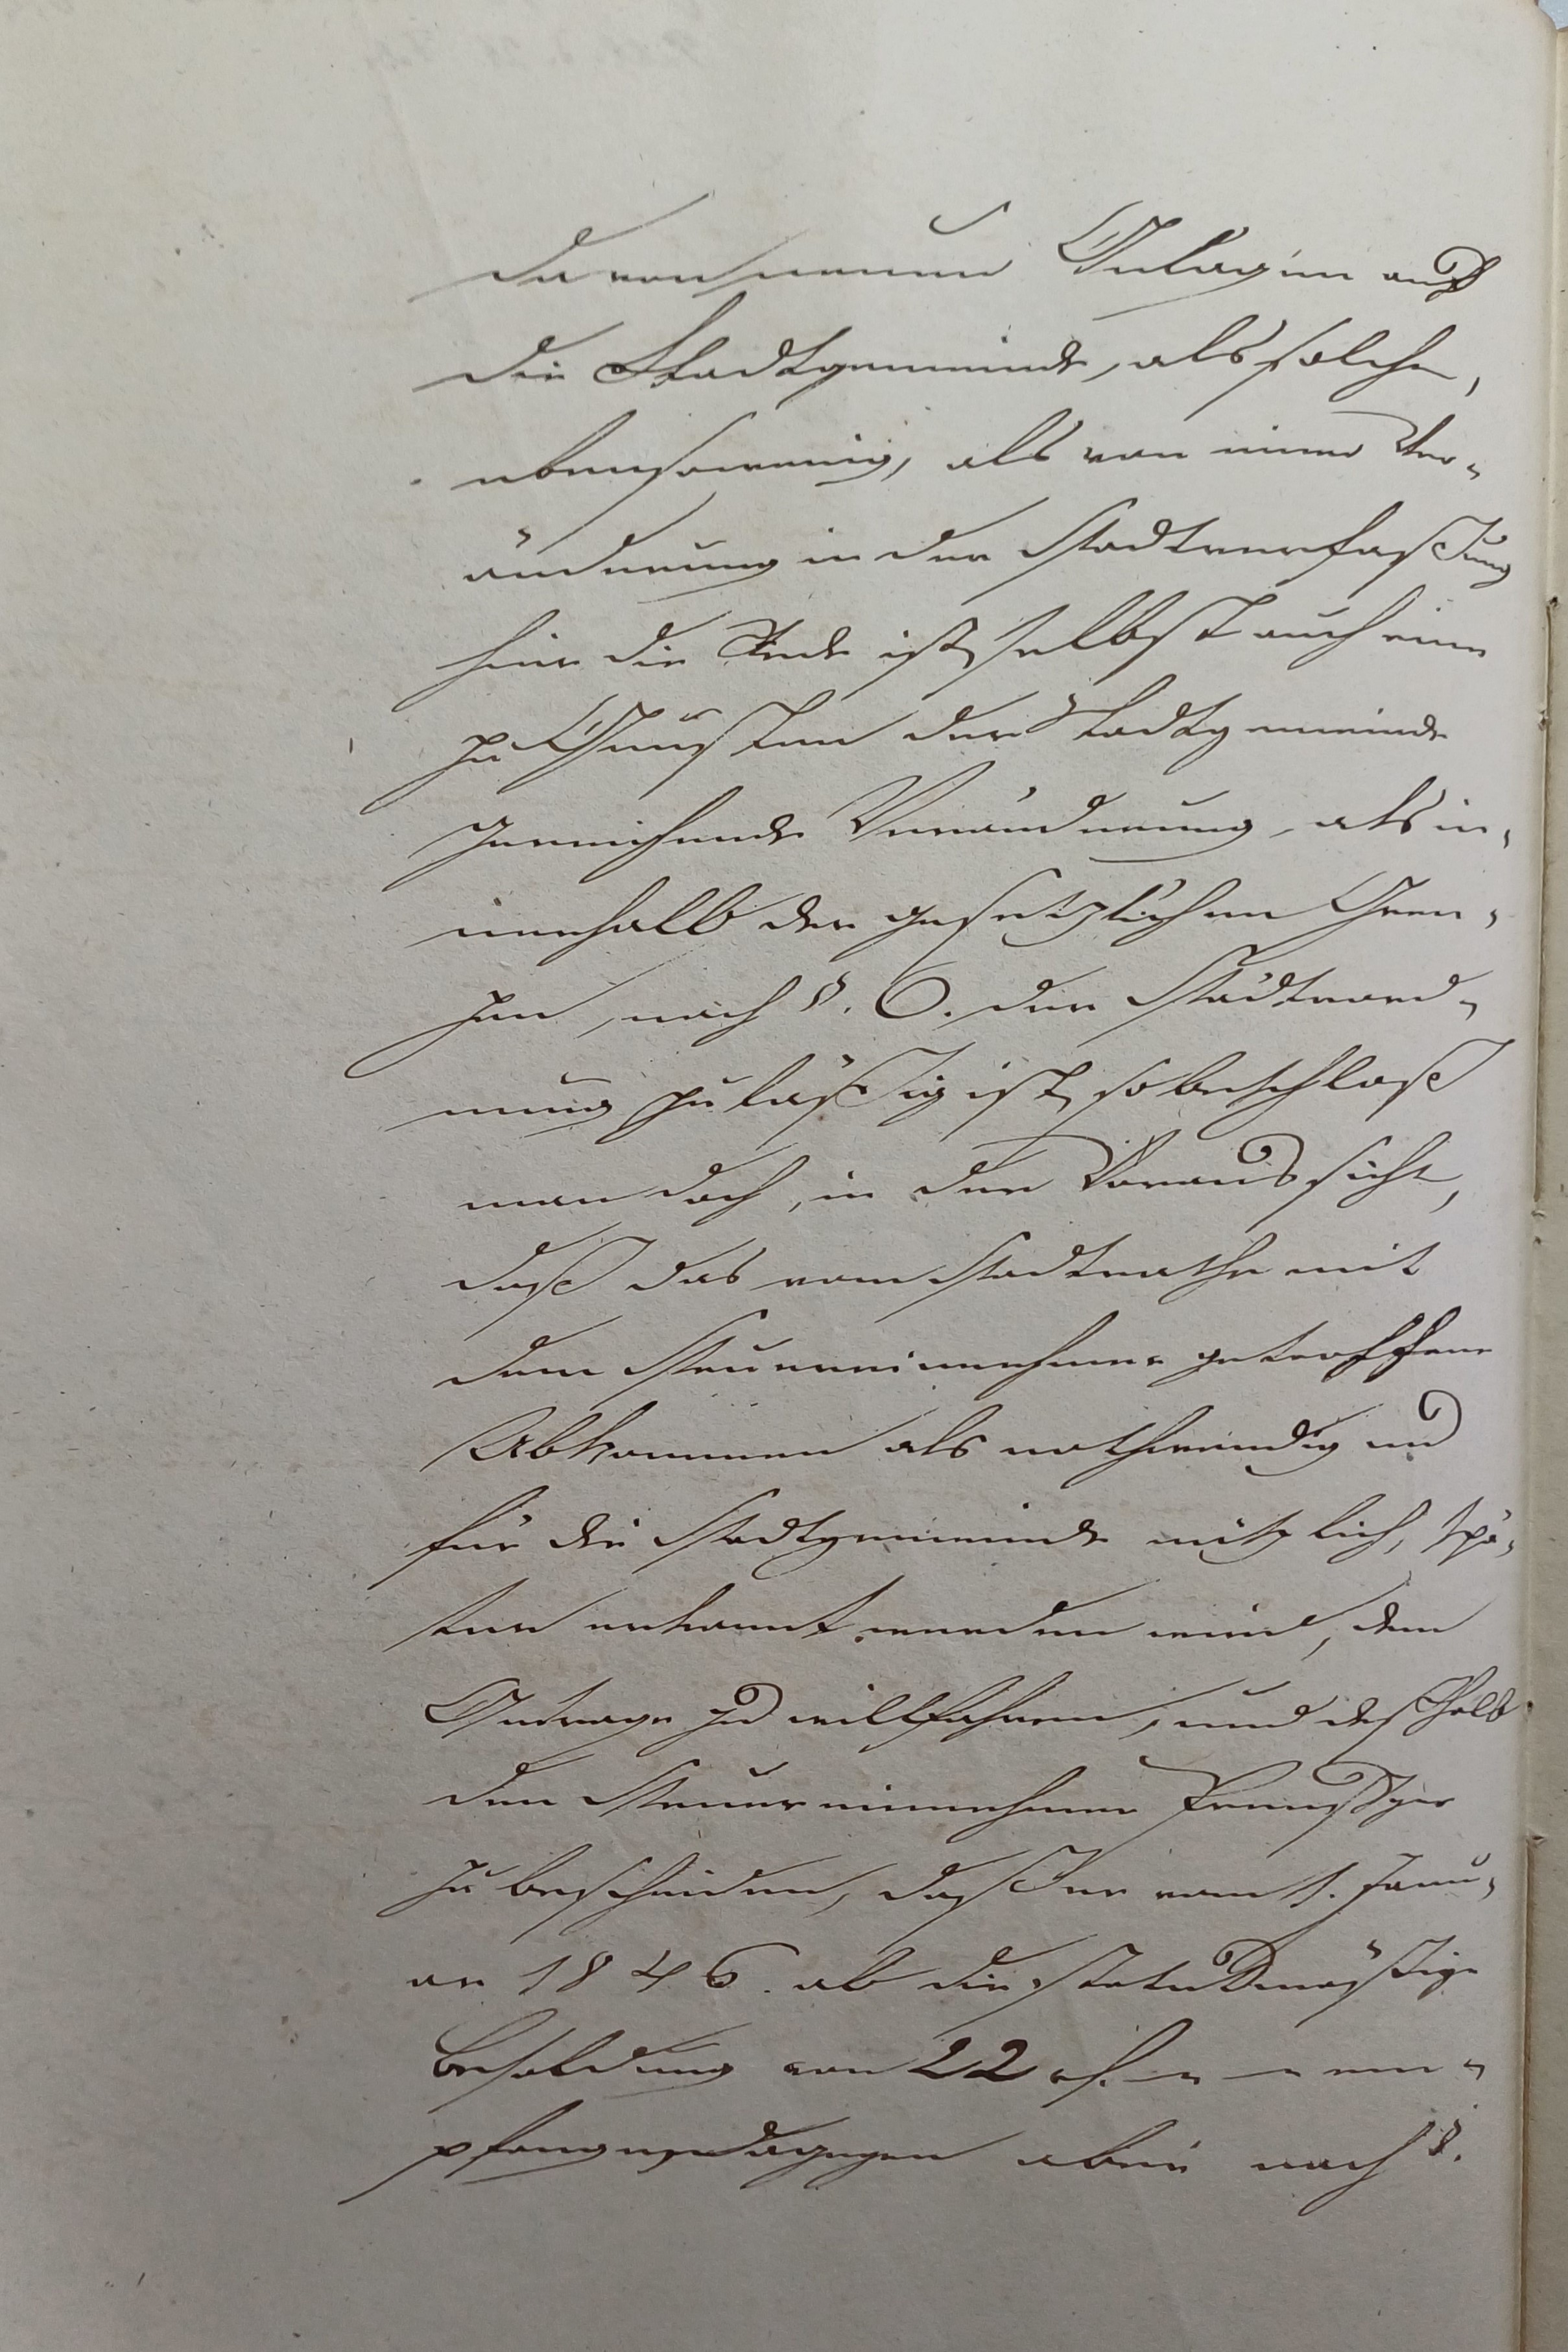 da von neuen Anlagen auf
die Stadtgemeinde, als solche,
ebensowenig, als von einer Ver-
änderung in der Stadtverfaßung
hier die Rede ist, selbst auch eine
zu Gunsten der Stadtgemeinde
gereichende Veränderung, als in-
nerhalb der gesetzlichen Gren-
zen, nach §. 6. der Städteord-
nung zuläßig ist, so beschloß
man doch, in der Voraussicht,
daß das vom Stadtrathe mit
dem Steuereinnehmer getroffene
Abkommen als nothwendig und
für die Stadtgemeinde nützlich, spä-
ter erkannt werden wird, dem
Antrage zu willfahren, und deshalb
den Steuereinnehmer
zu bescheiden, daß er vom 1. Janu-
ar 1846. ab die statutmäßige
Besoldung von 22 rf. – – em-
pfangen, dagegen aber nach §.